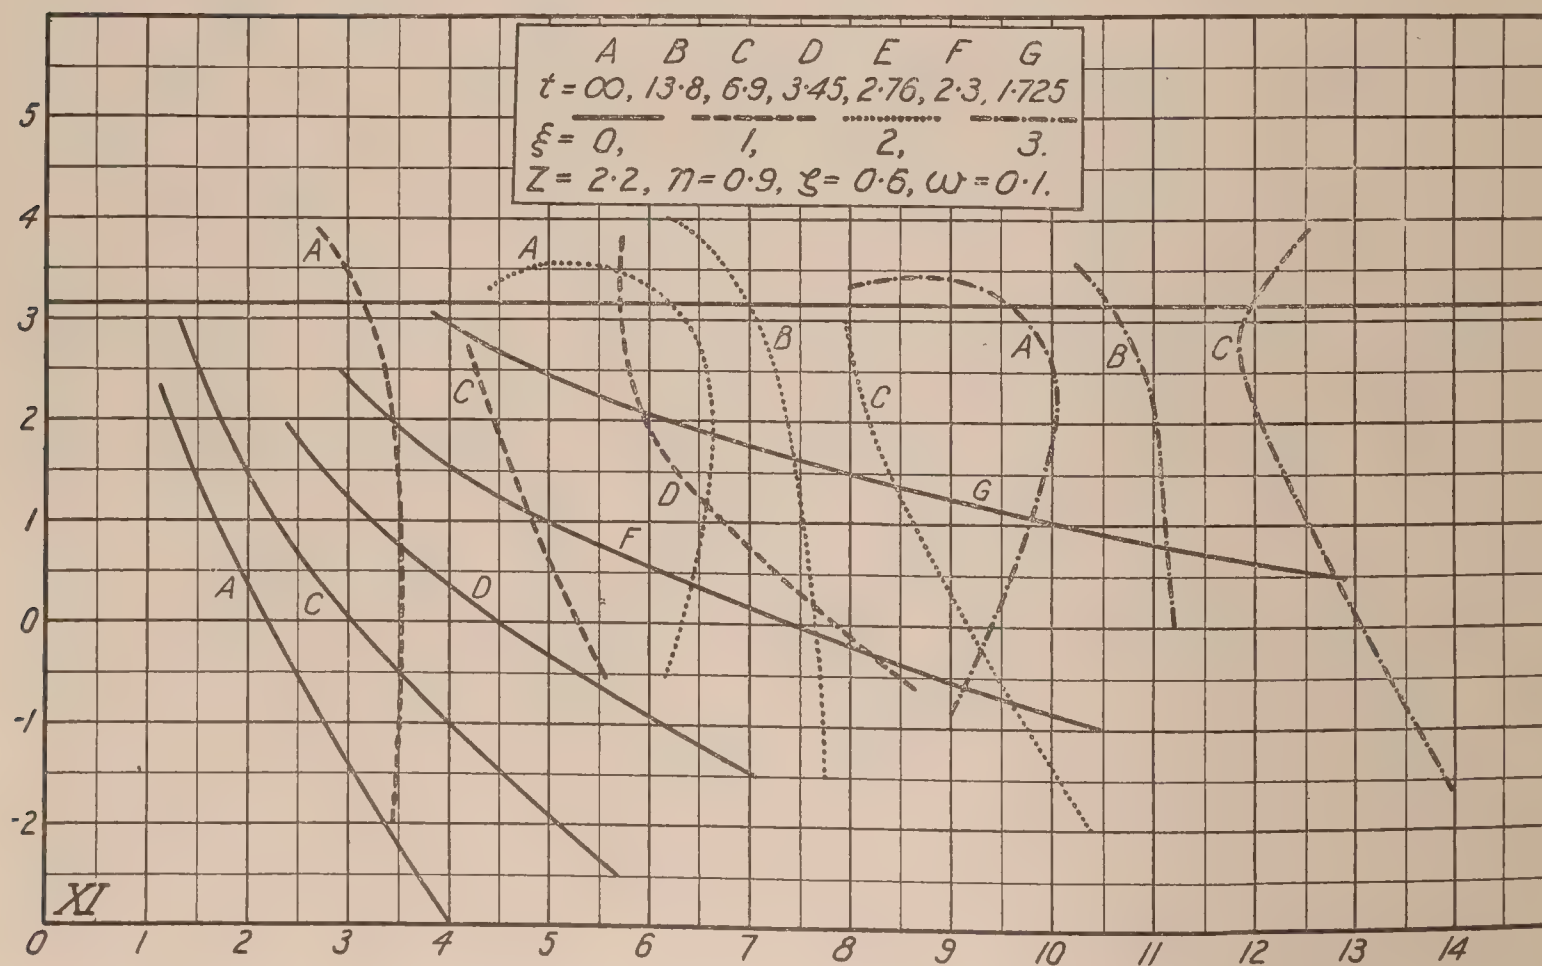 A B C D E F G
t = ∞, 13·8, 6·9, 3·45, 2·76, 2·3, 1·725
ξ = 0, 1, 2, 3.
Z = 2·2, η = 0·9, ξ = 0·6, ω = 0·1.
5
4
3
2
1
0
-1
-2
A
A
B
C
C
D
A
B
C
A
C
D
F
G
XI
0 1 2 3 4 5 6 7 8 9 10 11 12 13 14